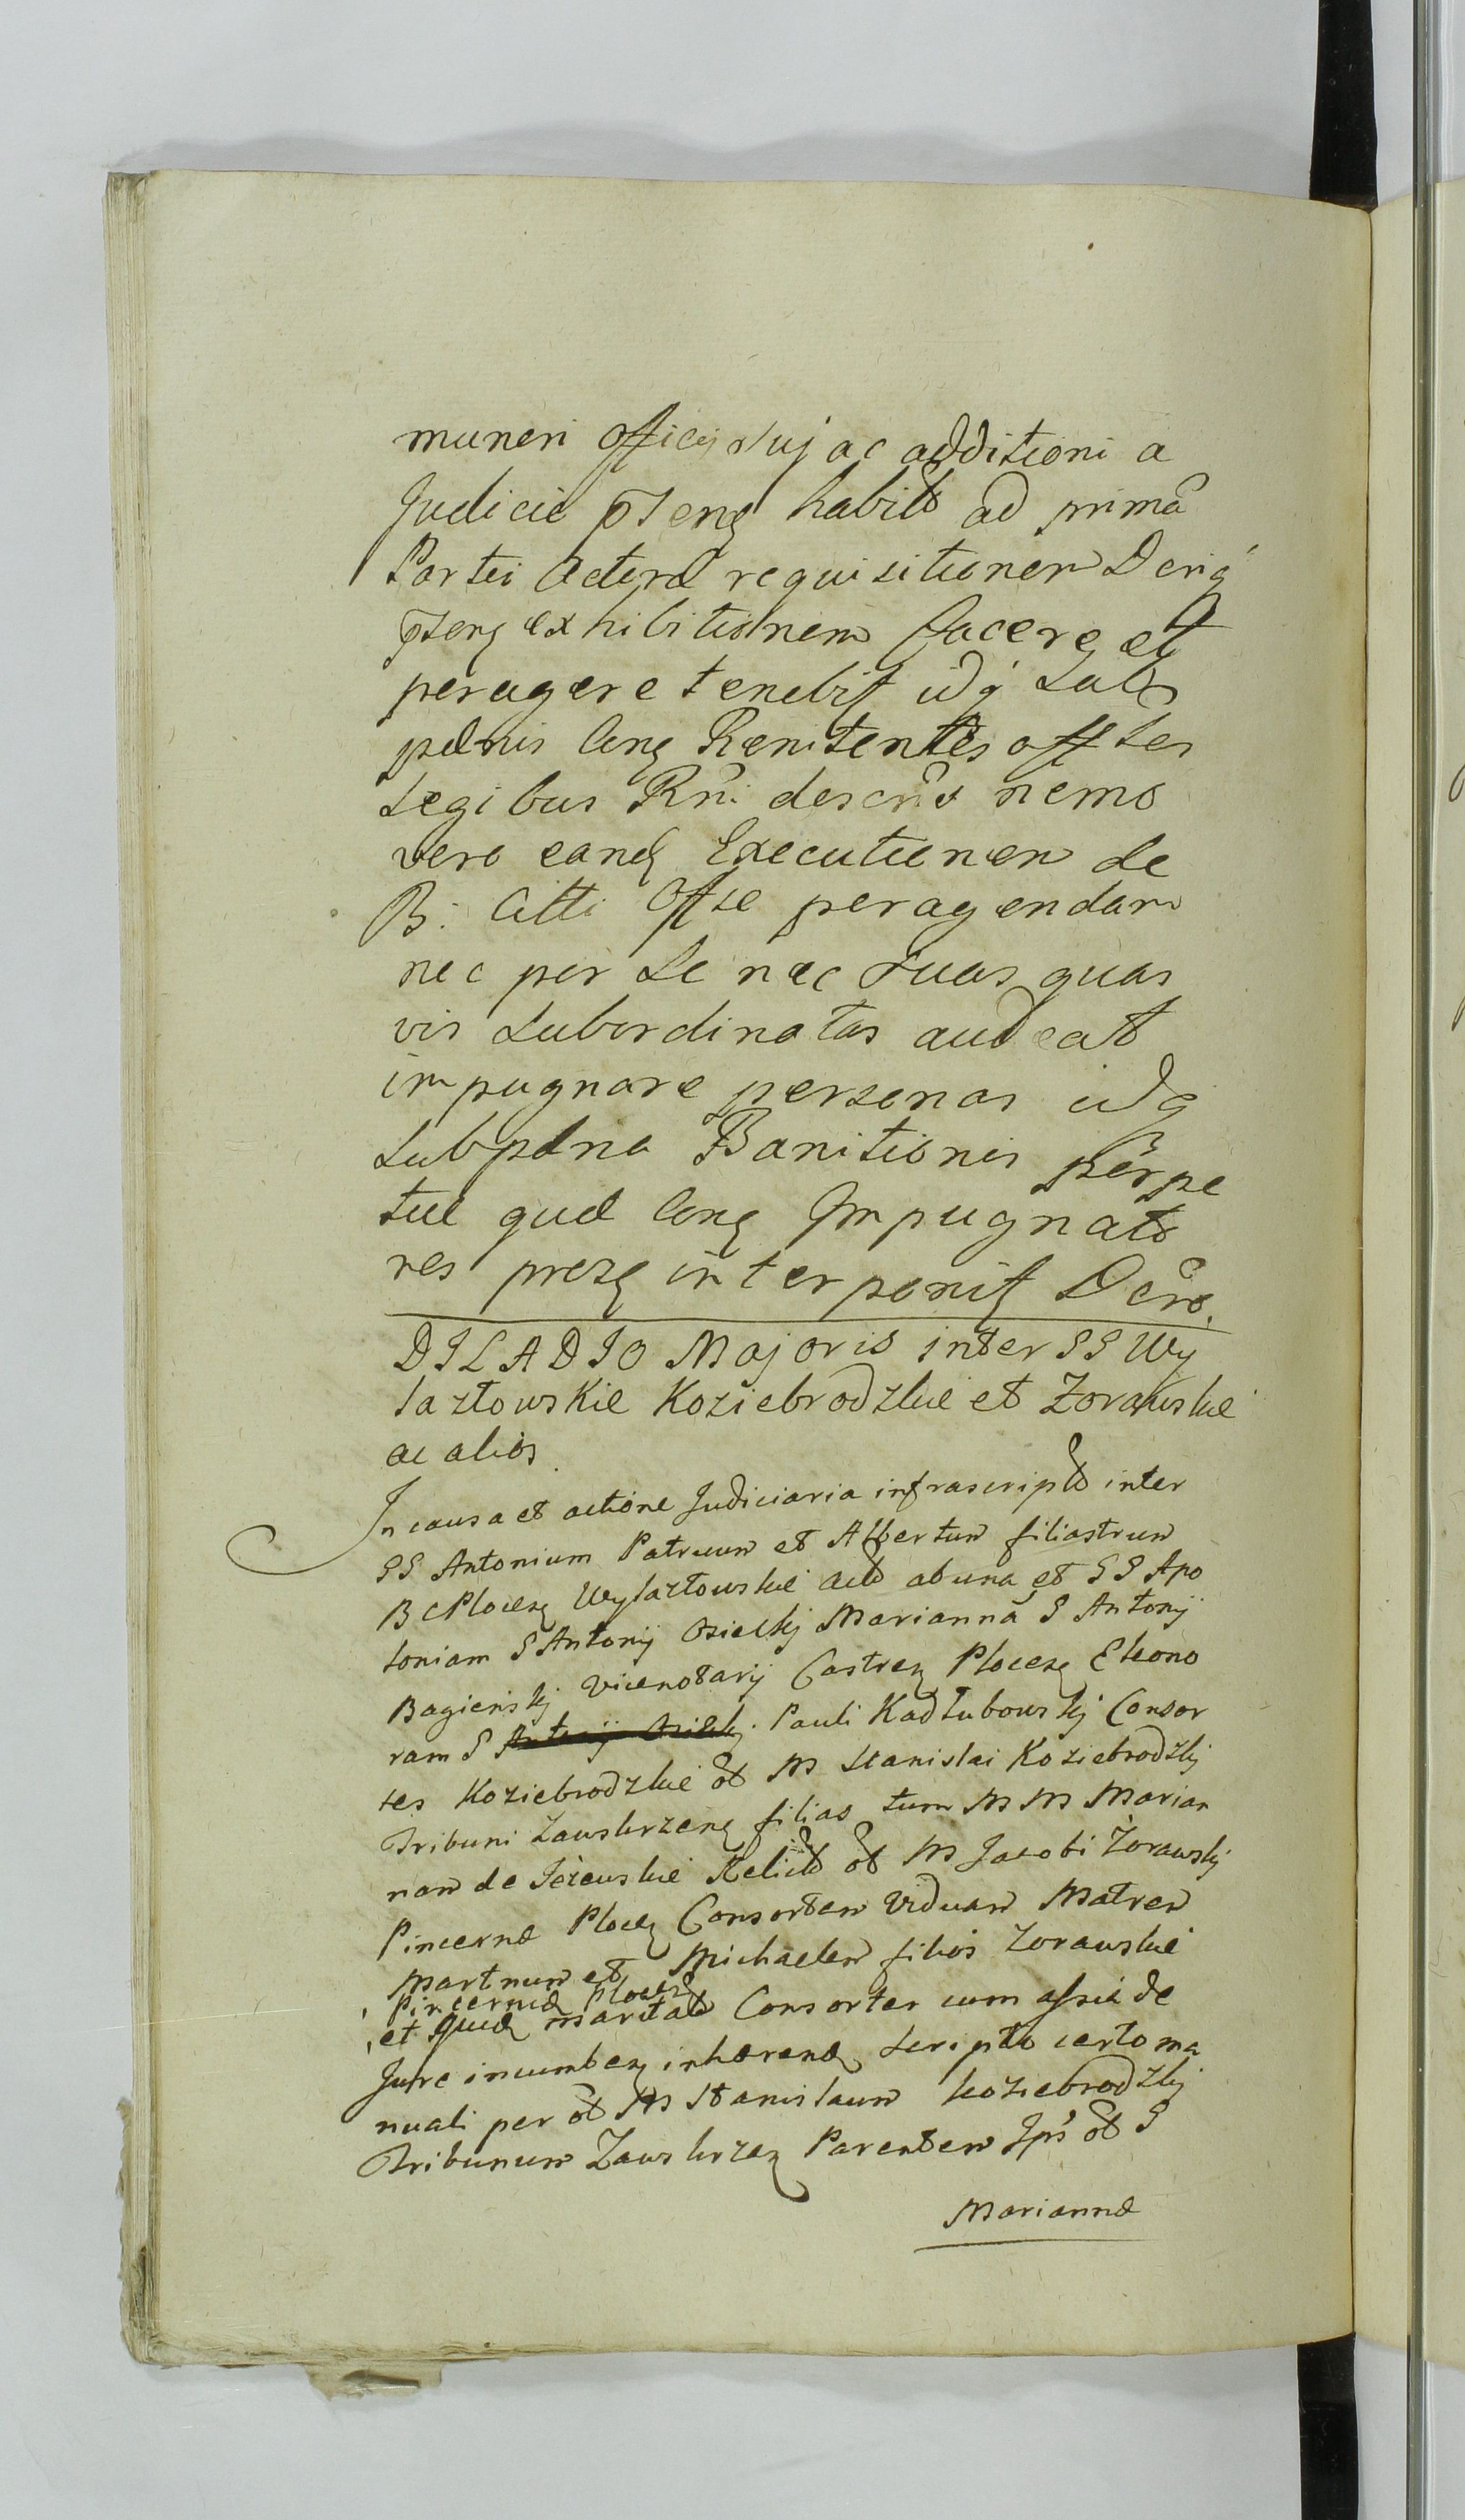 muneri officij suj ac additioni a
Judicio pteng habit ad prima
Partei Actorae requisitionem Deng
pteng exhibitionem facere et
peragere tenebit idq sub
paenis cong Renitentes offtes
Legibus Rni descris nemo
vero eandg Executionem de
B: Citti Offse peragendam
nec per se nec suas quas
vis subordinatas audeat
impugnare personas idq
sub paena Banitionis perpe
tuae quae cong Impugnato
res presg interponit Decro.
DILADIO Majoris inter SS Wy
laztowskie Koziebrodzkie et Zorawskie
ac alios
In causa et actione Judiciaria infrascript inter
SS Antonium Patruum et Albertum filiastrum
BC Plocesg Wylaztowskie act ab una et SS Apo
loniam S Antonij Osieckj Marianna S Antonij
Bagienskj Vicenotarij Castreng Plocesg Eleono
ram S Antonij Osieckj Pauli Kadłubowskj Consor
tes Koziebrodzkie ot M Stanislai Koziebrodzkj
Tribuni Zawskrzeng filias tum M M Marian
nam de Jeżewskie Relict ot M Jacobi Żorawskj
Pincernae Ploceg Consortem Viduam Matrem
Martinum et Michaelem filios Zorawskie
Pincernid Plocesg
et Quidg maritat Consortes cum assiade
Jure incumbeng inhaerendg scripto certo ma
nuali per ot M Stanislaum Koziebrodzkj
Tribunum Zawskrzeng Parentem Jps ot S
Mariannae